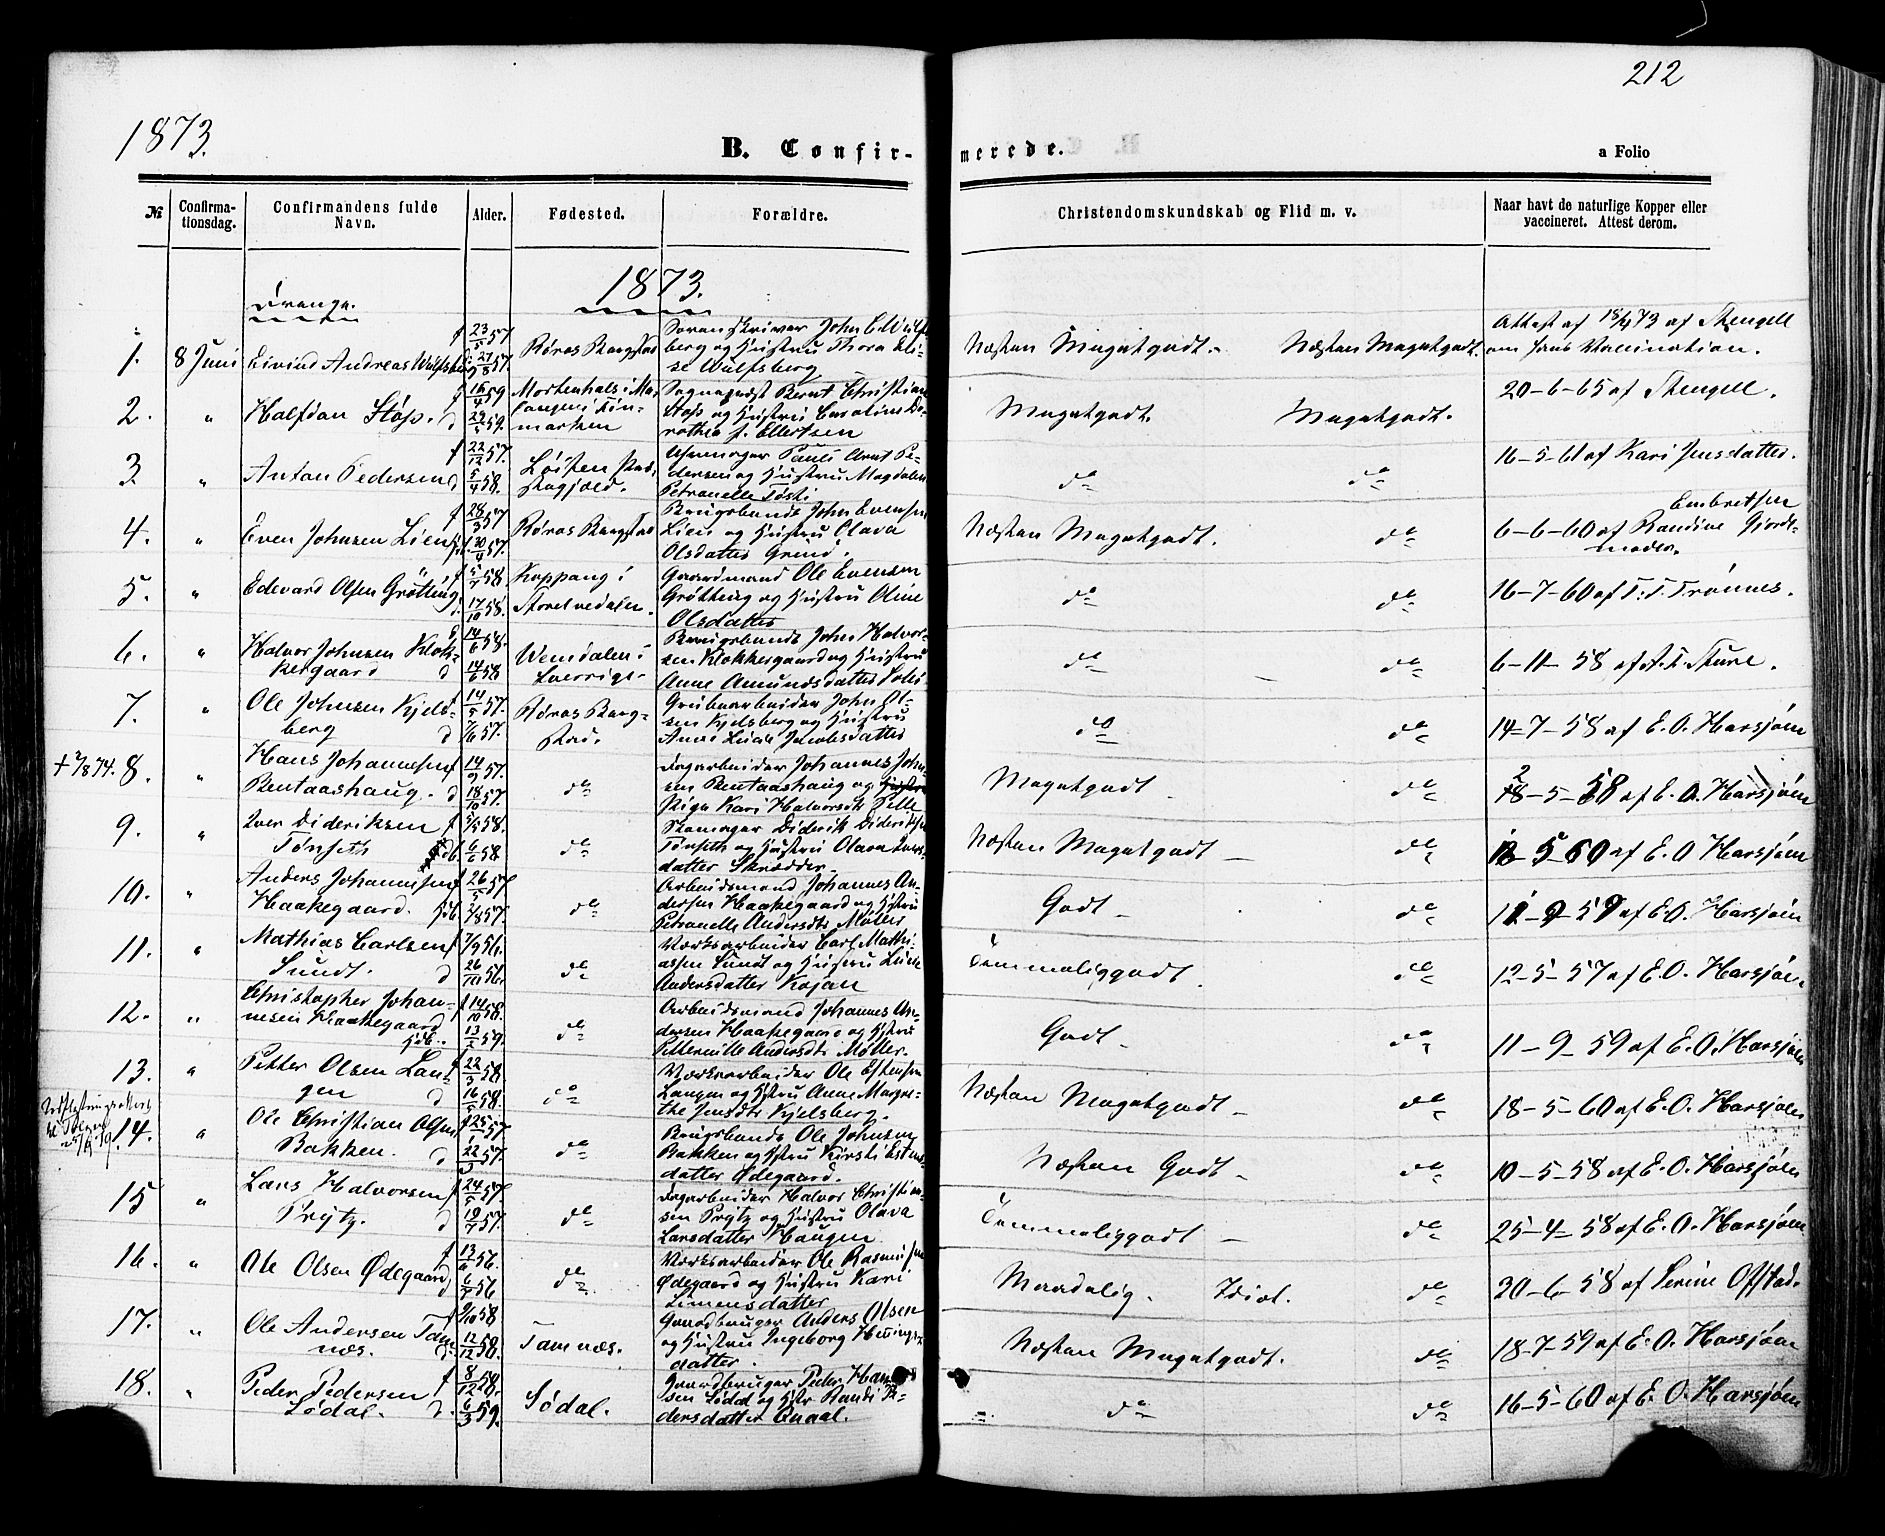 212
1873.
B. Confir-
merede.
a Folio
№
Confirma-
tionsdag.
Confirmandens fulde
Navn.
Alder.
Fødested.
Forældre.
Christendomskundskab og Flid m. v.
Naar havt de naturlige Kopper eller
vaccineret. Attest derom.
Drenge.
1873.
1. 8 Juni Eivind Andreas Wulfsberg
f 23/5 57.
Røros Bergstad
Sorenskriver John C. Wulfs-
berg og Hustru Thora Eli-
se Wulfsberg
Næsten Megetgodt. Næsten Megetgodt.
Attest af 18/4 73 af Stengell
om Vaccination.
2. " Halfdan Støp. d
f 16/4 59
29/5 59.
Mortenhals i Ma-
langen i Fin-
marken
Sognepræst Bernt Christian
Støp og Hustru Caroline Do-
rothea f. Ellertsen
Megetgodt. Megetgodt.
20-6-65 af Stengell.
3. " Anton Pedersen d
f 22/12 57.
5/4 58.
Petronelle Tøst.
do do
16-5-61 af Kari Jensdatter.
4. " Even Johnsen Lien
f 28/3 57
30/4 57.
Røros Bergstad
Brugsbonde John Evensen
Lien og Hustru Olava
Olsdatter Grind.
Næsten Megetgodt. do
Embretsen
6-6-60 af Randine Gjord-
moder.
5. " Edevard Olsen Grötting
f 5/7 58.
d. 17/10 58.
Koppang i
Storelvedalen.
Gaardmand Ole Evensen
Grötting og Hustru Oline
Olsdatter
do do
16-7-60 af T. T. Trønnes.
6. " Halvor Johnsen Klok-
kergaard d
14/6 58.
14/6 58
Wemdalen i
Sverrige.
Brugsbonde John Halvor-
sen Klokkergaard og Hustru
Anne Amundsdatter
do do
6-11-58 af Sture.
7. " Ole Johnsen Kjels-
berg d
f 14/5 57.
7/6 57.
Røros Berg-
stad.
Grubearbeider John Ol-
sen Kjelsberg og Hustru
Anne Lucie Jacobsdatter
do do
14-7-58 af E. O. Harsjøen
+ 2/8 74. 8. " Hans Johannesen
Bentaashaug. d
f 14/9 57.
18/10 57.
do
Dagarbeider Johannes John-
sen Bentaashaug og
Pige Kari Halvorsdt Pelle
Megetgodt do
2
18-5-58 af E. O. Harsjøen
9. " Iver Dideriksen f
Tønseth
5/5 58.
6/6 58
do
Skomager Diderik Dideriksen
Tønseth og Hustru Olava Ivers-
datter Skrædder.
Næsten Megetgodt do
18-5-60 af E. O Harsjøen
10. " Anders Johannesen f
Haakegaard.
26/5 57
2/8 57.
do
Arbeidsmand Johannes An-
dersen Haakegaard og Hstru
Petronelle Andersdt Møller
Godt do
11-9-59 af E. O. Harsjøen
11. " Mathias Carlsen f
Sundt. d
7/9 56.
26/10 56.
do
Værksarbeider Carl Mathi-
assen Sundt og Hustru Lucie
Andersdatter Kojan
Temmeliggodt do
12-5-57 af E. O. Harsjøen
12. " Christopher Johan-
nesen Haakegaard
Hjdb.
f 14/10 58.
13/2 59.
do
Arbeidsmand Johannes An-
dersen Haakegaard og Hstru
Andersdt Møller.
Godt do
11-9-59 af E. O. Harsjøen
13. " Petter Olsen Lan-
gen d
f 22/3 58
16/5 58.
do
Værksarbeider Ole Estensen
Langen og Hstru Anne Margre-
the Jensdt Kjelsberg.
Næsten Megetgodt do
18-5-60 af E. O. Harsjøen
14. " Ole Christian Olsen
Bakken. d
f 25/1 57
22/3 57.
do
Brugsbonde Ole Johnsen
Bakken og Hstru Kirsti Estens-
datter Ødegaard.
Næsten Godt do
10-5-58 af E. O. Harsjøen
15 " Lars Halvorsen f
Prytz. d
24/5 57
19/7 57.
do
Dagarbeider Halvor Christian-
sen Prytz og Hustru Olava
Larsdatter Haugen
Temmeliggodt do
25-4-58 af E. O. Harsjøen
16. " Ole Olsen Ødegaard
f 13/6 56.
d 6/7 56
do
Værksarbeider Ole Rasmussen
Ødegaard og Hustru Kari
Simensdatter
Maadelig. Idiot. do
20-6-58 af Serine Offstad.
17. " Ole Andersen Tam-
næs. d.
f 9/10 58
12/12 58.
Tamnæs.
Gaardbruger Anders Olsen
og Hustru Ingeborg Henings-
datter.
Næsten Megetgodt. do
18-7-59 af E. O. Harsjøen
18. " Peder Pedersen f
Sødal. d.
8/12 58.
6/3 59.
Sødal.
Gaardbruger Peder Han-
sen Sødal og Hstr Randi Pe-
dersdatter Aaal.
do do
16-5-60 af E. O. Harsjøen